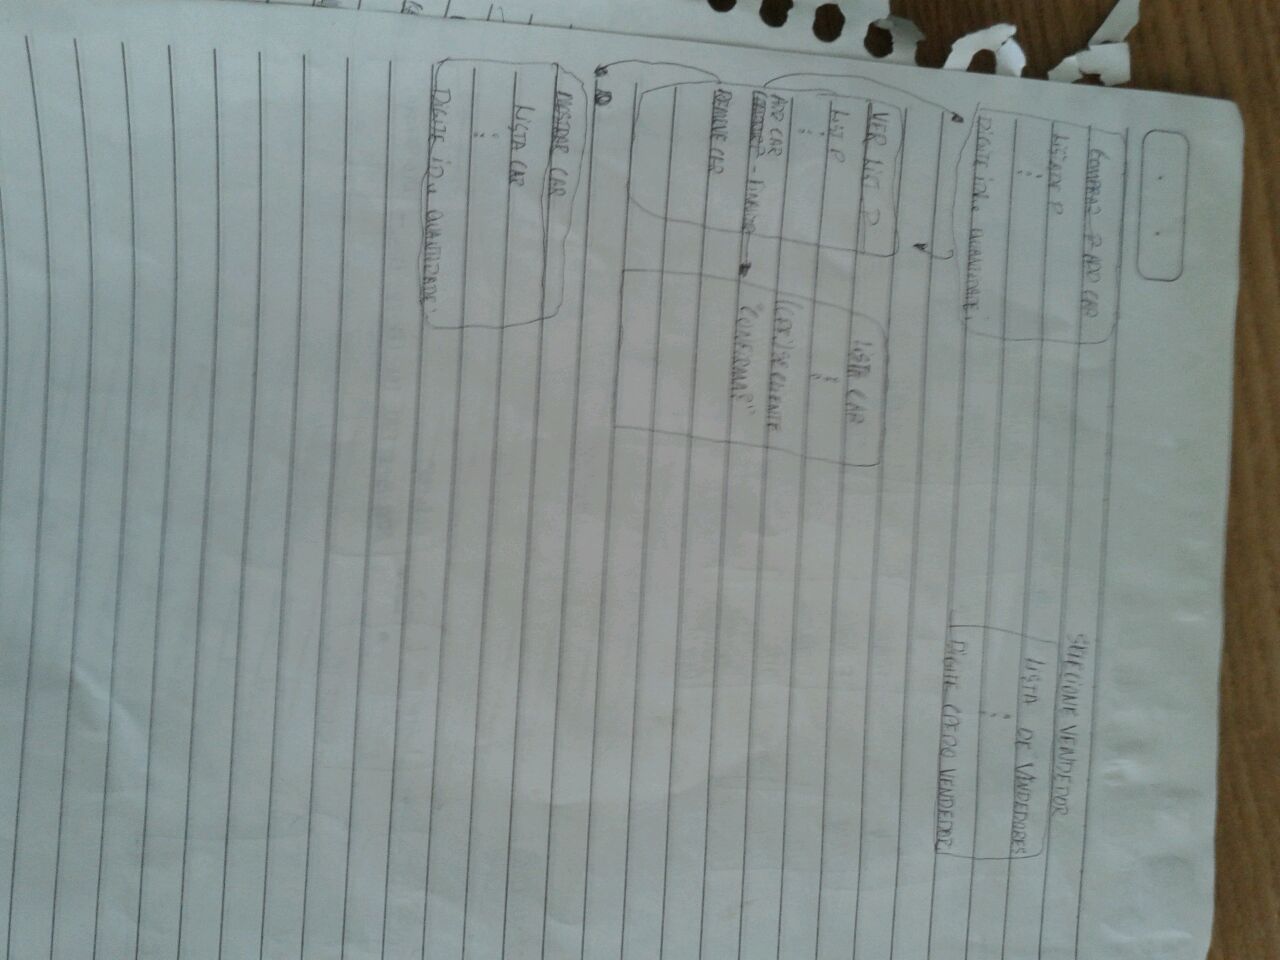 COMPRAR P ADD CAR
LISTA DE P
DIGITE ID e QUANTIDADE:
SELECIONE VENDEDOR
LISTA DE VENDEDORES
DIGITE CPF DO VENDEDOR
VER LIST P
LIST P
ADD CAR
- FINALIZAR
REMOVE CAR
LISTA CAR
(CPF) SE CLIENTE
"CONFIRMAS"
MOSTRAR CAR
LISTA CAR
DIGITE ID e QUANTIDADE: